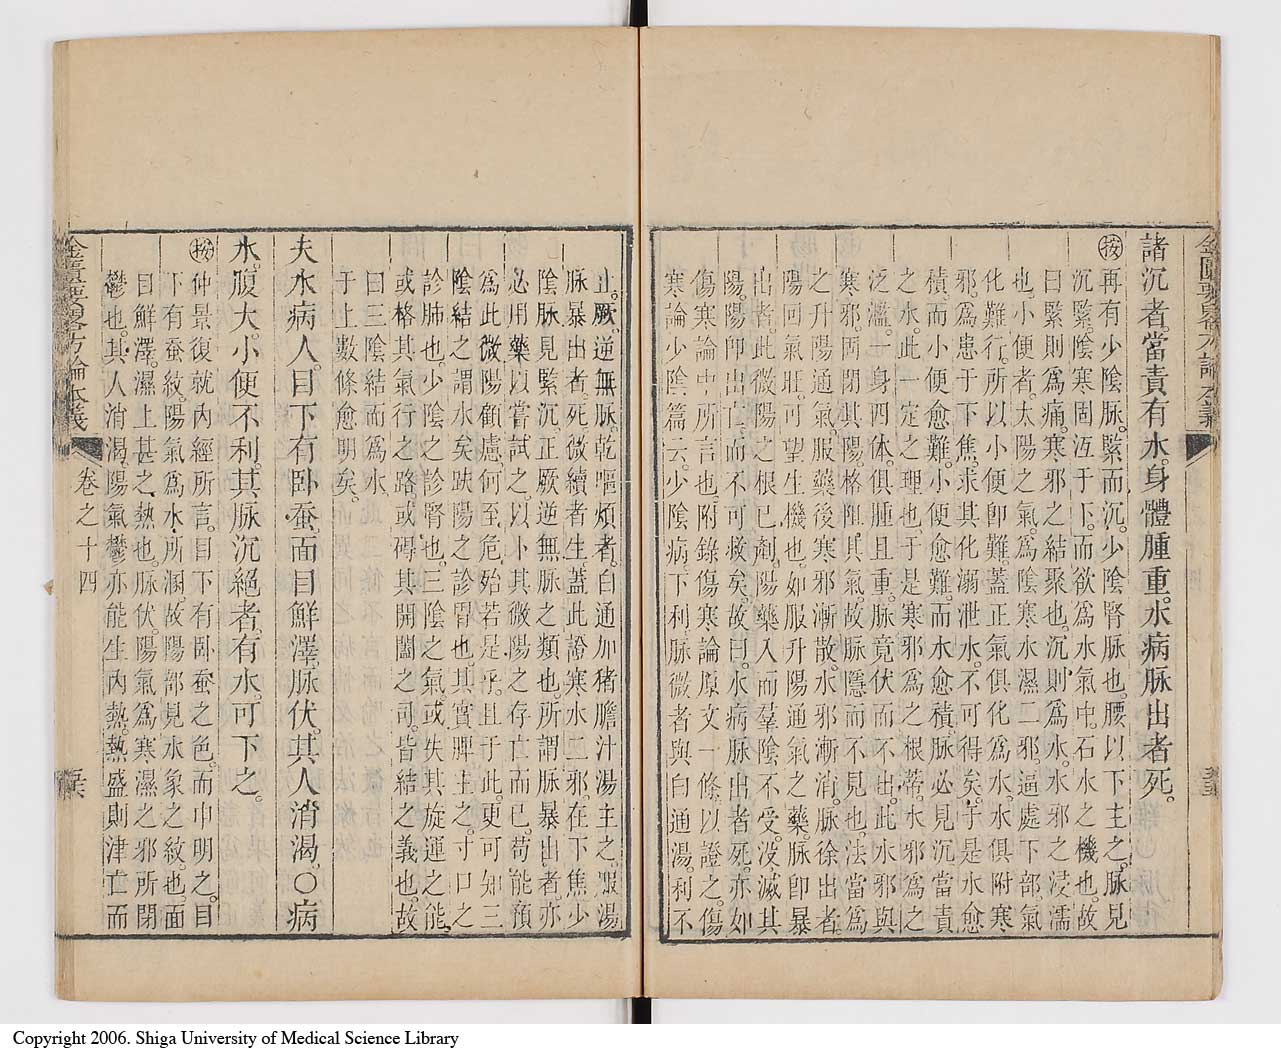 諸沉者。當責有水。身體腫重。水病脉出者死。
㊩再有少陰脉。緊而沉。少陰腎脉也。腰以下主之。脉見
沉緊。陰寒固沍于下。而欲爲水氣屯。石水之機也。故
曰緊則爲痛。寒邪之結聚也。沉則爲水。水邪之浸濡
也。小便者。太陽之氣。爲陰寒水濕二邪。逼處下部。氣
化難行。所以小便卽難。蓋正氣俱化爲水。水俱附寒
邪。爲患于下焦。求其化溺泄水。不可得矣。于是水愈
積。而小便愈難。小便愈難。而水愈積。脉必見沉。當責
之水。此一定之理也。于是寒邪爲之根蒂。水邪爲之
泛濫。一身四体。俱腫且重。脉竟伏而不出。此水邪與
寒邪。固閉其陽。格阻其氣。故脉隱而不見也。法當爲
之升陽通氣。服藥後。寒邪漸散。水邪漸消。脉徐出者。
陽回氣旺。可望生機也。如服升陽通氣之藥。脉卽暴
出者。此微陽之根已剷。陽藥入而羣陰不受。没滅其
陽。陽卽出亡而不可救矣。故曰。水病脉出者死。亦如
傷寒論中所言也。附錄傷寒論原文一條。以證之。傷
寒論少陰篇云。少陰病。下利。脉微者。與白通湯。利不
止。厥逆無脉。乾嘔煩者。白通加猪膽汁湯主之。服湯
脉暴出者死。微續者生。蓋此證寒水二邪。在下焦少
陰。脉見緊沉。正厥逆無脉之類也。所謂脉暴出者。亦
必用藥以嘗試之。以卜其微陽之存亡而已。苟能預
爲此微陽顧慮。何至危殆若是乎。且于此。更可知三
陰結之謂水矣。趺陽之診胃也。其實脾主之。寸口之
診肺也。少陰之診腎也。三陰之氣。或失其旋運之能。
或格其氣行之路。或碍其開闔之司。皆結之義也。故
曰三陰結而爲水。
于上數條愈明矣。
夫水病人。目下有卧蚕。面目鮮澤。脉伏。其人消渴。〇病
水。腹大。小便不利。其脉沉絕者。有水。可下之。
㊩仲景復就內經所言。目下有卧蚕之色。而申明之。目
下有蚕紋。陽氣爲水所溷。故陽部見水象之紋也。面
目鮮澤。濕上甚之熱也。脉伏。陽氣爲寒濕之邪所閉
鬱也。其人消渴。陽氣鬱亦能生內熱。熱盛則津亡而
金匱要略方論本義
卷之十四
Copyright 2006. Shiga University of Medical Science Library